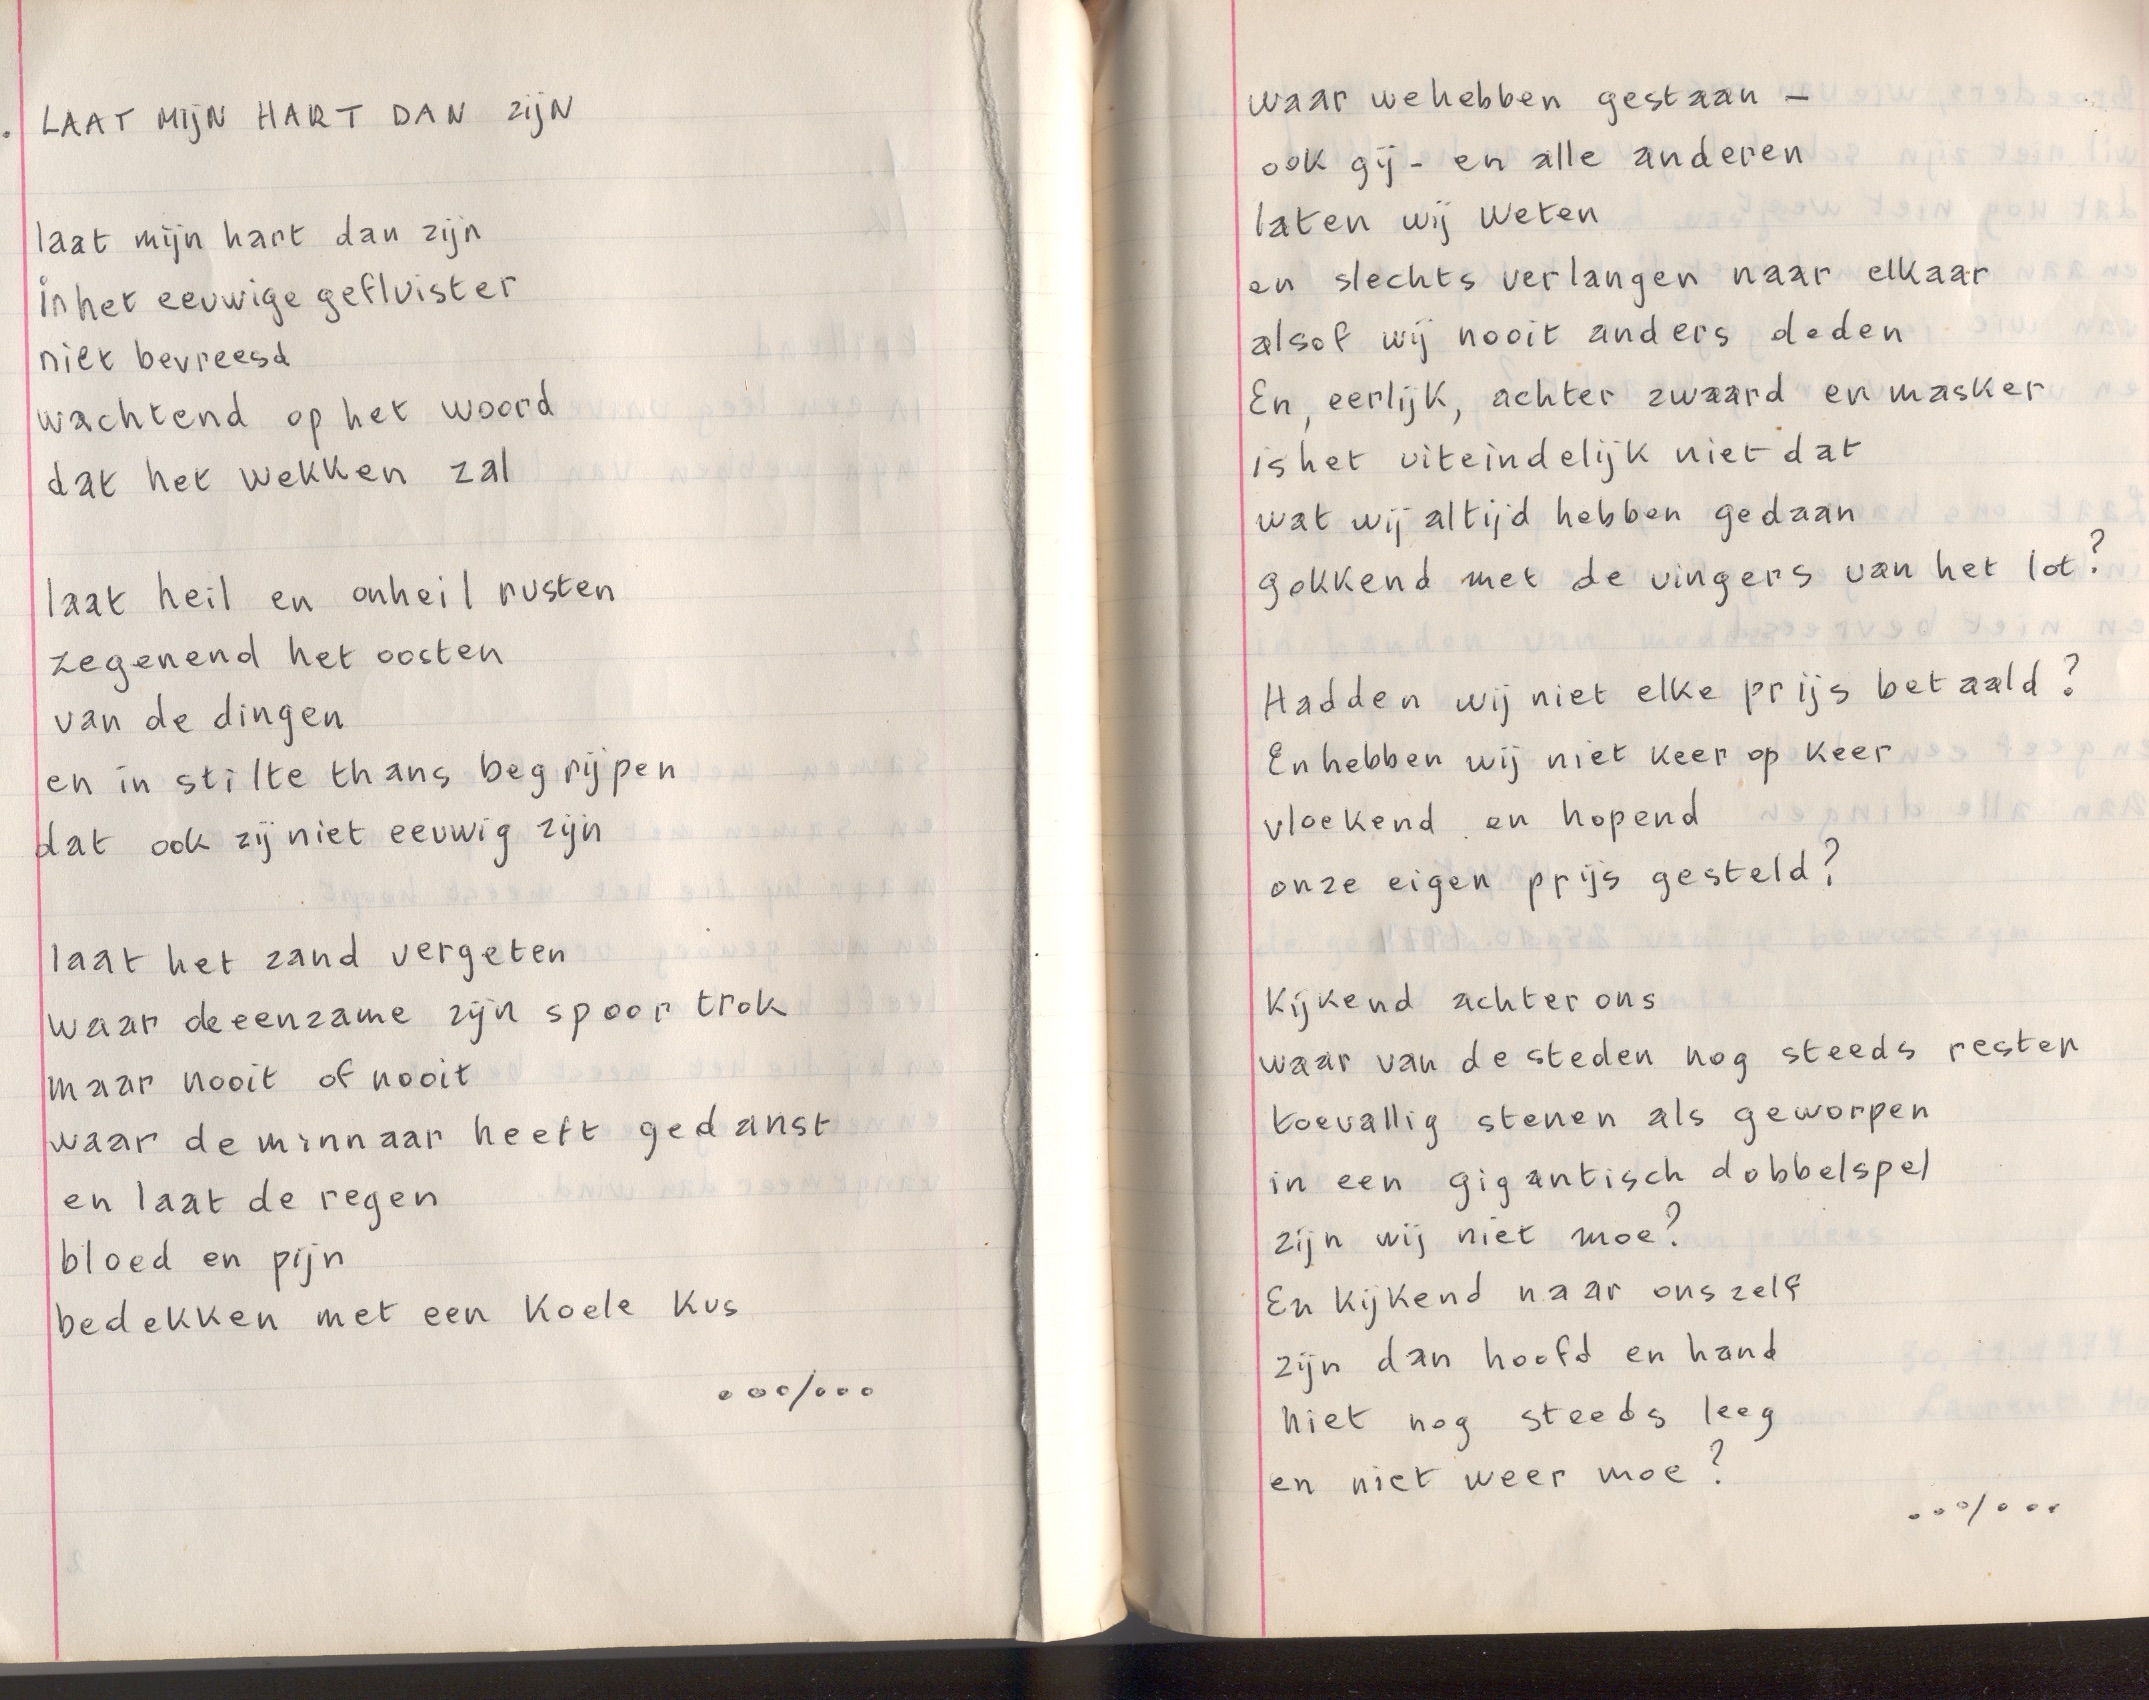 . LAAT MIJN HART DAN ZIJN
laat mijn hart dan zijn
in het eeuwige gefluister
niet bevreesd
wachtend op het woord
dat het wekken zal
laat heil en onheil rusten
zegenend het oosten
van de dingen
en in stilte thans begrijpen
dat ook zij niet eeuwig zijn
laat het zand vergeten
waar de eenzame zijn spoor trok
maar nooit of nooit
waar de minnaar heeft gedanst
en laat de regen
bloed en pijn
bedekken met een koele kus
...../...
waar we hebben gestaan -
ook gij - en alle anderen
laten wij weten
en slechts verlangen naar elkaar
alsof wij nooit anders deden
En, eerlijk, achter zwaard en masker
is het uiteindelijk niet dat
wat wij altijd hebben gedaan
gokkend met de vingers van het lot?
Hadden wij niet elke prijs betaald?
En hebben wij niet keer op keer
vloekend en hopend
onze eigen prijs gesteld?
Kijkend achter ons
waar van de steden nog steeds resten
toevallig stenen als geworpen
in een gigantisch dobbelspel
zijn wij niet moe?
En kijkend naar onszelf
zijn dan hoofd en hand
niet nog steeds leeg
en niet weer moe?
.../...